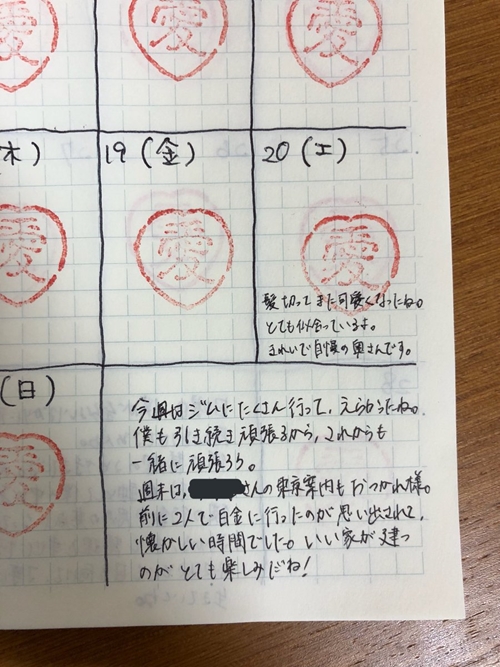 愛
愛
愛
木)
19(金)
20(土)
愛
愛
愛
髪切ってまた可愛くなったね。
とても似合っているよ。
きれいで自慢の奥さんです。
(日)
愛
今週はジムにたくさん行って、えらかったね。
僕も引き続き頑張るから、これからも
一緒に頑張ろう。
週末は、さんの東京案内もおつかれ様。
前に2人で白金に行ったのが思い出されて、
懐かしい時間でした。いい家が建つ
のがとても楽しみだね!